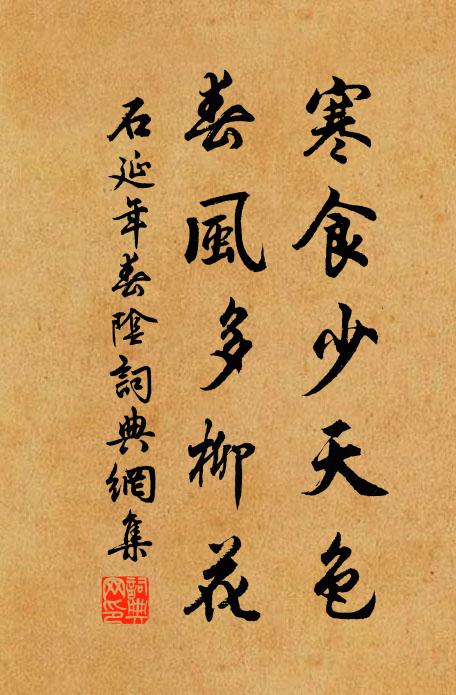 寒食少天色
春風多柳花
石延年春陰詞典網集
詞典
網印